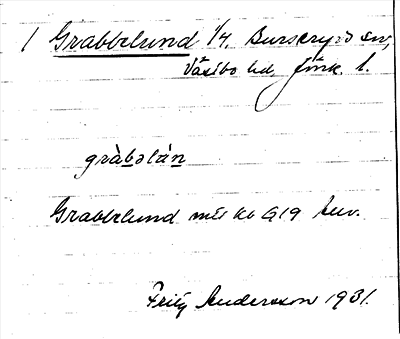 1 Grabbelund 1/4, Burseryds sn,
Västbo hd Jönk. l.
gràbəlán
Grabbelund mtl kb G19 huv.
Fritz Andersson 1931.